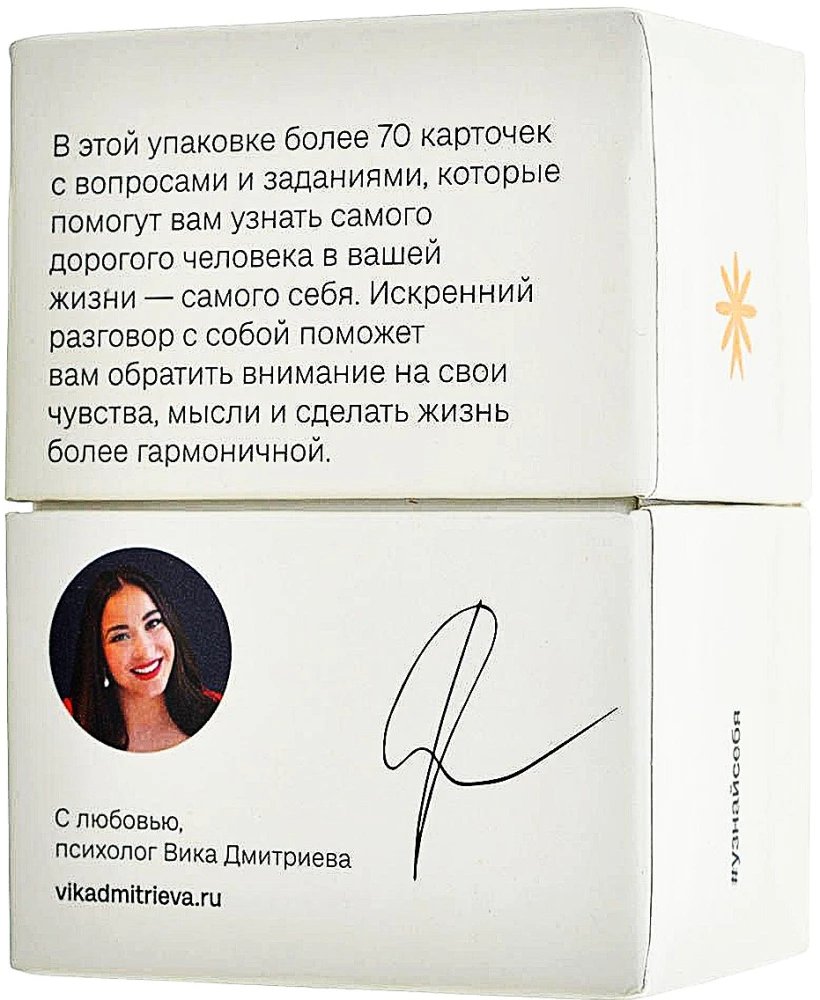 В этой упаковке более 70 карточек
с вопросами и заданиями, которые
помогут вам узнать самого
дорогого человека в вашей
жизни — самого себя. Искренний
разговор с собой поможет
вам обратить внимание на свои
чувства, мысли и сделать жизнь
более гармоничной.
С любовью,
психолог Вика Дмитриева
vikadmitrieva.ru
#узнайсобя